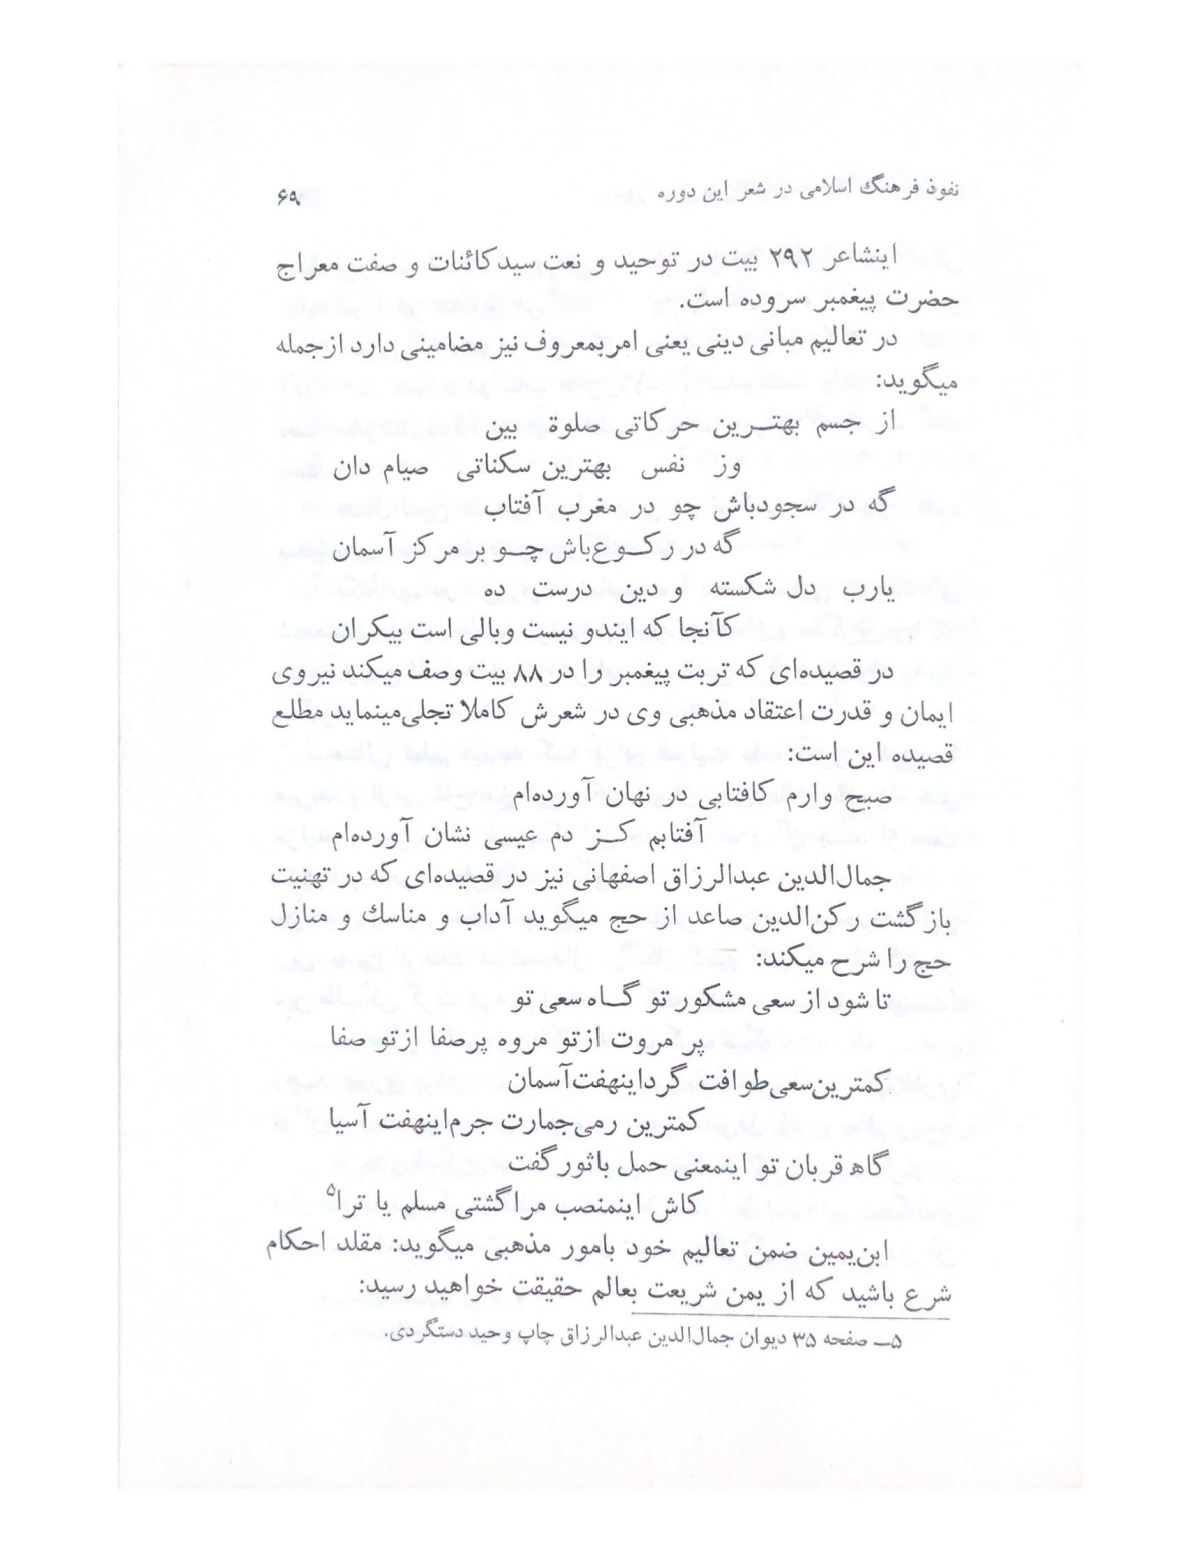 نفوذ فرهنگ اسلامی در شعر این دوره ۶۹
اینشاعر ۲۹۲ بیت در توحید و نعت سیدکائنات و صفت معراج
حضرت پیغمبر سروده است.
در تعالیم مبانی دینی یعنی امربمعروف نیز مضامینی دارد ازجمله
میگوید:
از جسم بهترین حرکاتی صلوة بین
وز نفس بهترین سکناتی صیام دان
گه در سجودباش چو در مغرب آفتاب
گه در رکوع‌باش چو بر مرکز آسمان
یارب دل شکسته و دین درست ده
کآنجا که ایندو نیست وبالی است بیکران
در قصیده‌ای که تربت پیغمبر را در ۸۸ بیت وصف میکند نیروی
ایمان و قدرت اعتقاد مذهبی وی در شعرش کاملا تجلی‌مینماید مطلع
قصیده این است:
صبح وارم کافتابی در نهان آورده‌ام
آفتابم کز دم عیسی نشان آورده‌ام
جمال‌الدین عبدالرزاق اصفهانی نیز در قصیده‌ای که در تهنیت
بازگشت رکن‌الدین صاعد از حج میگوید آداب و مناسك و منازل
حج را شرح میکند:
تا شود از سعی مشکور تو گاه سعی تو
پر مروت ازتو مروه پرصفا ازتو صفا
کمترین‌سعی‌طوافت گرداینهفت‌آسمان
کمترین رمی‌جمارت جرم‌اینهفت آسیا
گاه قربان تو اینمعنی حمل باثور گفت
کاش اینمنصب مراگشتی مسلم یا ترا۵
ابن‌یمین ضمن تعالیم خود بامور مذهبی میگوید: مقلد احکام
شرع باشید که از یمن شریعت بعالم حقیقت خواهید رسید:
۵ــ صفحه ۳۵ دیوان جمال‌الدین عبدالرزاق چاپ وحید دستگردی.